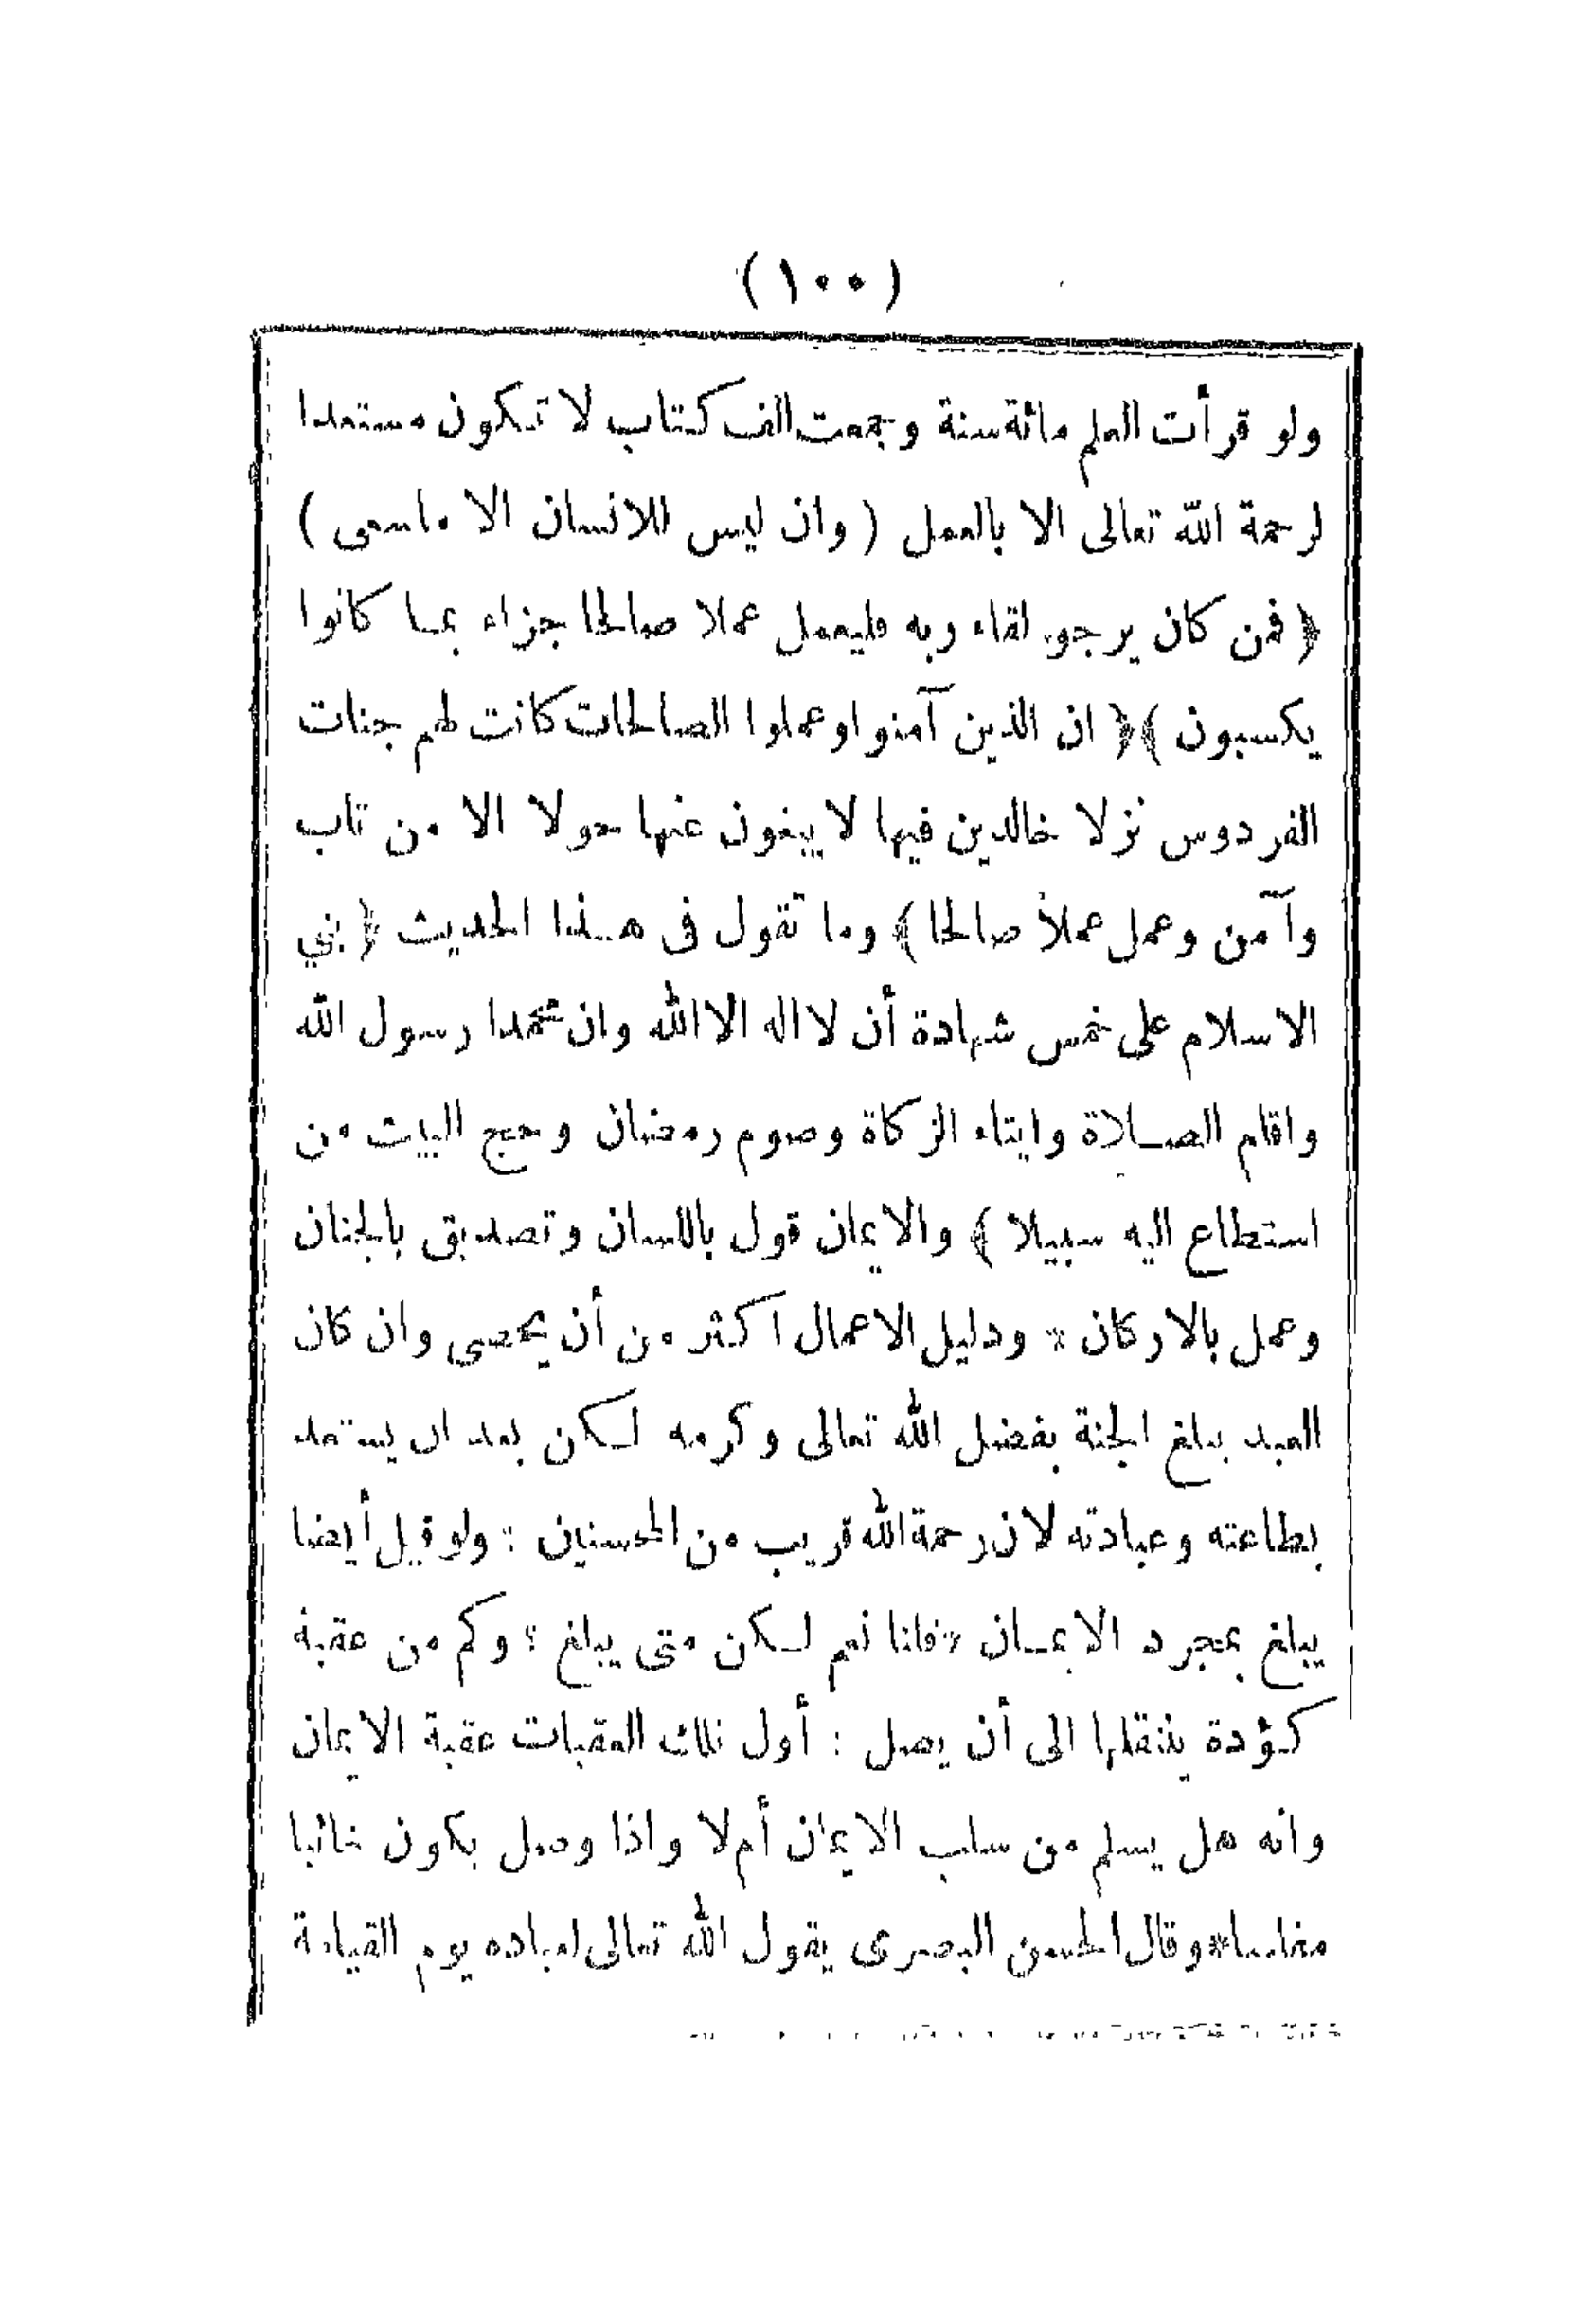 (١٠٠)
ولو قرأت العلم مائة سنة وجمعت الف كتاب لا تكون مستعدا
لرحمة الله تعالى الا بالعمل ( وان ليس للانسان الا ماسعى )
﴿ فمن كان يرجو لقاء ربه فليعمل عملا صالحا جزاء بما كانوا
يكسبون ﴾﴿ ان الذين آمنوا وعملوا الصالحات كانت لهم جنات
الفردوس نزلا خالدين فيها لا يبغون عنها حولا الا من تاب
وآمن وعمل عملاً صالحا ﴾ وما تقول فى هذا الحديث ﴿ بني
الاسلام على خمس شهادة أن لا اله الا الله وان محمدا رسول الله
واقام الصلاة وايتاء الزكاة وصوم رمضان وحج البيت من
استطاع اليه سبيلا ﴾ والايمان قول باللسان وتصديق بالجنان
وعمل بالاركان * ودليل الاعمال اكثر من أن يحصى وان كان
العبد يبلغ الجنة بفضل الله تعالى وكرمه لكن بعد ان يستعد
بطاعته وعبادته لان رحمة الله قريب من المحسنين : ولو قيل أيضا
يبلغ بمجرد الايمان * قلنا نعم لكن متى يبلغ ؟ وكم من عقبة
كؤدة ينتقلها الى أن يصل : أول تلك العقبات عقبة الايمان
وانه هل يسلم من سلب الايمان أم لا واذا وصل يكون خائبا
مفلسا * وقال الحسن البصرى يقول الله تعالى لعباده يوم القيامة